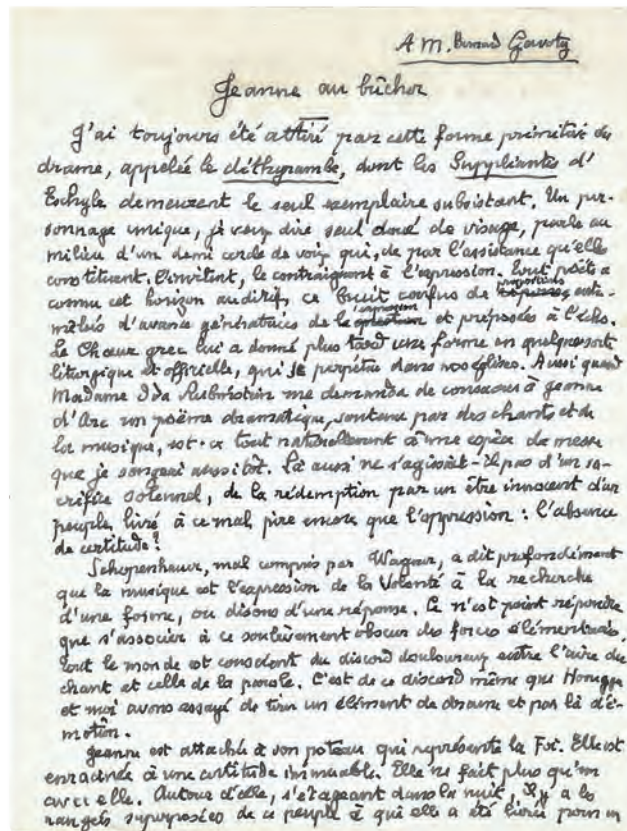 A M. Bernard Gavoty
Jeanne au bûcher
J'ai toujours été attiré par cette forme primitive du
drame, appelée le dithyrambe, dont les Suppliantes d'
Eschyle demeurent le seul exemplaire subsistant. Un per-
sonnage unique, je veux dire seul doué de visage, parle au
milieu d'un demi cercle de voix qui, de par l'assistance qu'elles
constituent, l'invitent, le contraignent à l'expression. Tout poète a
connu cet horizon auditif, ce bruit confus de propositions entre-
mêlés d'avance génératrices de l'expression et préposées à l'écho.
Le Chœur grec lui a donné plus tard une forme en quelque sorte
liturgique et officielle, qui se perpétue dans nos églises. Aussi quand
Madame Ida Rubinstein me demanda de consacrer à Jeanne
d'Arc un poème dramatique, soutenu par des chants et de
la musique, est-ce tout naturellement à une espèce de messe
que je songeai aussitôt. Là aussi ne s'agissait-il pas d'un sa-
crifice solennel, de la rédemption par un être innocent d'un
peuple livré à ce mal pire encore que l'oppression : l'absence
de certitude?
Schopenhauer, mal compris par Wagner, a dit profondément
que la musique est l'expression de la Volonté à la recherche
d'une forme, ou disons d'une réponse. Ce n'est point répondre
que s'associer à ce soulèvement obscur des forces élémentaires.
Tout le monde est conscient du discord douloureux entre l'aire du
chant et celle de la parole. C'est de ce discord même que Honegger
et moi avons essayé de tirer un élément de drame et par là d'é-
motion.
Jeanne est attachée à son poteau qui représente la Foi. Elle est
enracinée à une certitude immuable. Elle ne fait plus qu'un
avec elle. Autour d'elle, s'étageant dans la nuit, il y a les
rangées superposées de ce peuple à qui elle a été livrée pour un